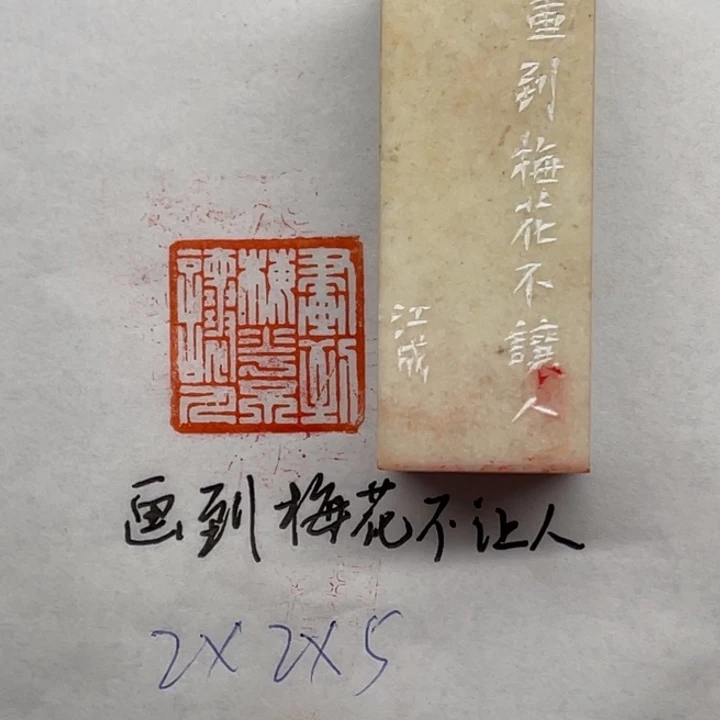 畫到梅花不讓人
江成
畫到
梅花不
讓人
画到梅花不让人
2X2X5